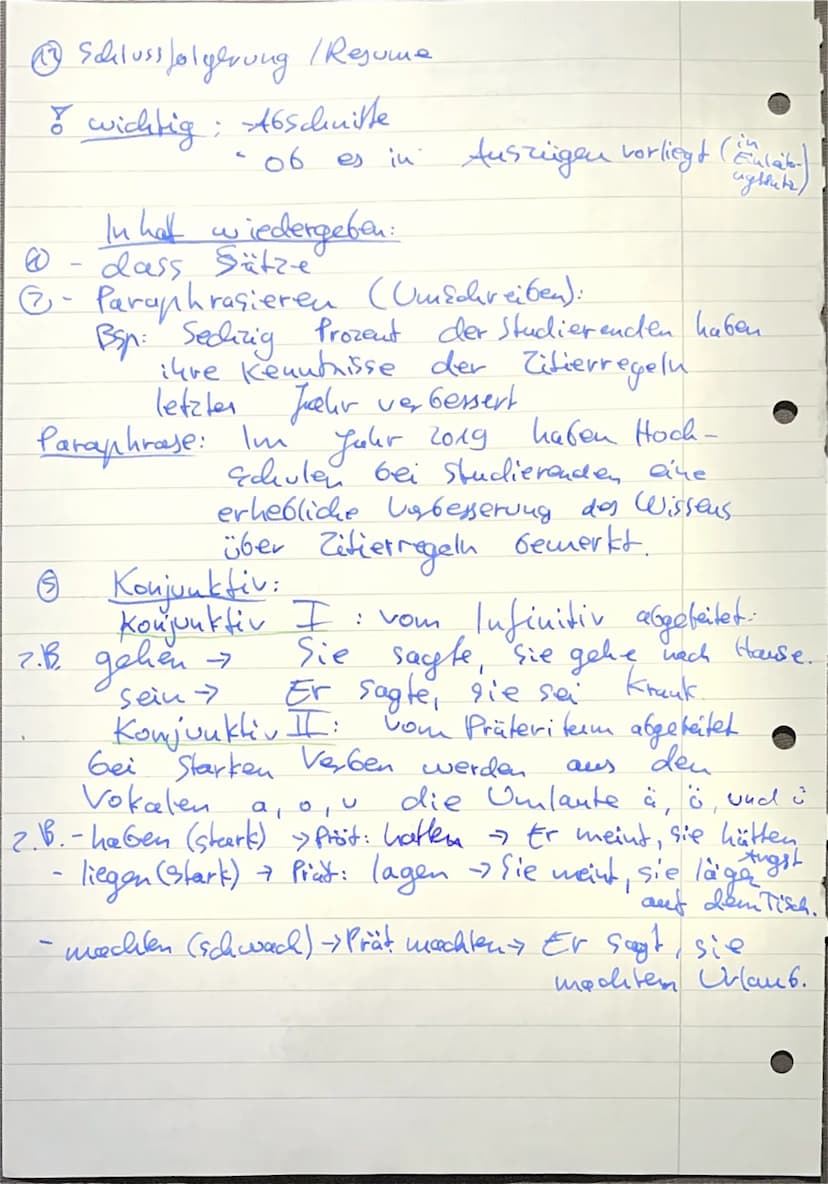 ⑰ Schlussfolgerung / Resume
wichtig: - Abschnitte
- ob es in Auszügen vorliegt (in
Einleit-
ungssatz)
Inhalt wiedergeben:
① - dass Sätze
② - Paraphrasieren (Umschreiben):
Bsp: Sechzig Prozent der Studierenden haben
ihre Kenntnisse der Zitierregeln
letztes Jahr verbessert
Paraphrase: Im Jahr 2019 haben Hoch-
schulen bei Studierenden eine
erhebliche Verbesserung des Wissens
über Zitierregeln bemerkt.
Konjunktiv:
Konjunktiv I : vom Infinitiv abgeleitet:
z.B. gehen → Sie sagte, sie gehe nach Hause.
sein → Er sagte, sie sei Krank.
Konjunktiv II: vom Präteritum abgeleitet
bei Starken Verben werden aus den
Vokalen a, o, u die Umlaute ä, ö, und ü
z.B. - haben (stark) → Prät: hatten → Er meint, sie hätten
Angst
- liegen (stark) → Prät: lagen → Sie meint, sie läge
auf dem Tisch.
- machten (schwach) → Prät machten → Er sagt, sie
machten Urlaub.